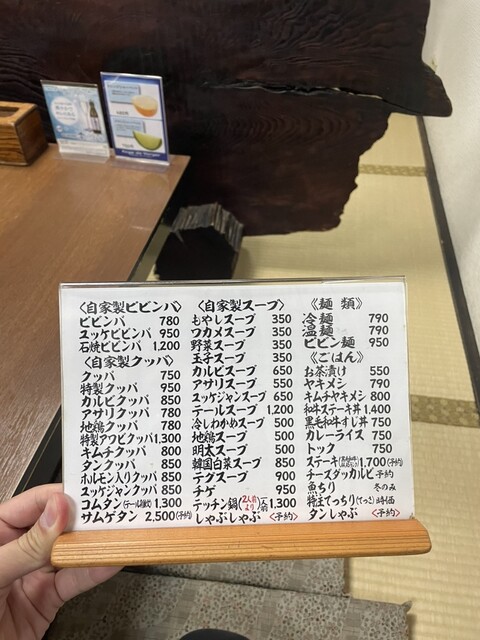 〈自家製ビビンバ〉
ビビンバ 780
ユッケビビンバ 950
石焼ビビンバ 1,200
〈自家製クッパ〉
クッパ 750
特製クッパ 950
カルビクッパ 850
アサリクッパ 780
地鶏クッパ 780
特製アワビクッパ 1,300
キムチクッパ 800
タンクッパ 850
ホルモン入りクッパ 850
ユッゲジャンクッパ 850
コムタン 1,300
サムゲタン 2,500 (予約)
〈自家製スープ〉
もやしスープ 350
ワカメスープ 350
野菜スープ 350
玉子スープ 350
カルビスープ 650
アサリスープ 550
ユッゲジャンスープ 650
テールスープ 1,200
冷しわかめスープ 500
地鶏スープ 500
明太スープ 500
韓国白菜スープ 850
テグスープ 900
チゲ 950
テッチン鍋 (2人前より) 一人前 1,300
しゃぶしゃぶ 〈予約〉
《麺類》
冷麺 790
温麺 790
ビビン麺 950
《ごはん》
お茶漬け 550
ヤキメシ 790
キムチヤキメシ 800
和牛ステーキ丼 1,400
黒毛和牛すじ丼 750
カレーライス 750
トック 750
ステーキ 1,700 (予約)
チーズダッカルビ 予約
魚ちり 冬のみ
特上てっちり (てっさ) 時価
タンしゃぶ 〈予約〉